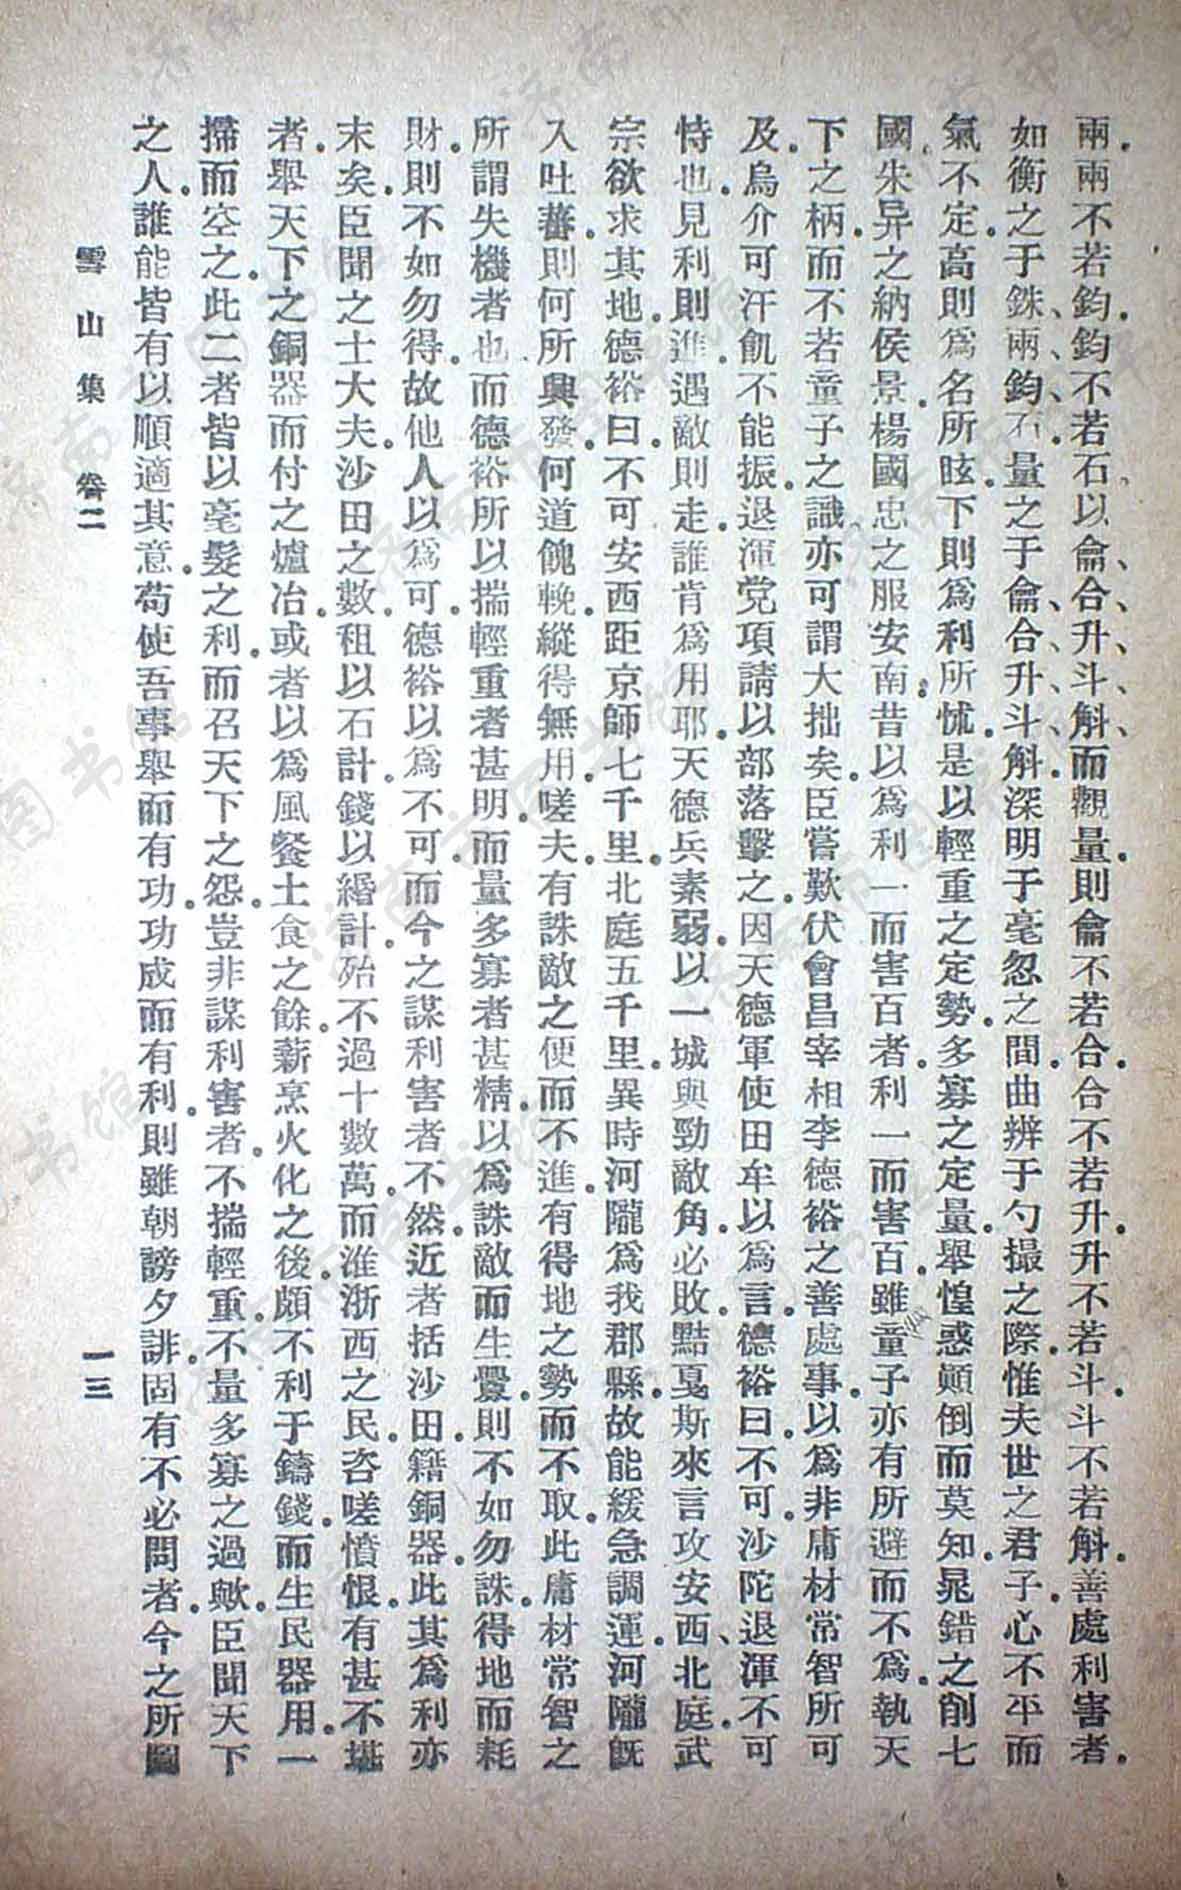 兩。兩不若鈞。鈞不若石。以龠、合、升、斗、斛、而觀量。則龠不若合。合不若升。升不若斗。斗不若斛。善處利害者。
如衡之于銖、兩、鈞、石。量之于龠、合、升、斗、斛。深明于毫忽之間。曲辨于勺撮之際。惟夫世之君子。心不平而
氣不定。高則爲名所眩。下則爲利所怵。是以輕重之定勢。多寡之定量。舉惶惑顚倒而莫知。鼂錯之削七
國。朱异之納侯景。楊國忠之服安南。昔以爲利一而害百者。利一而害百。雖童子亦有所避而不爲。執天
下之柄。而不若童子之識。亦可謂大拙矣。臣嘗歎伏會昌宰相李德裕之善處事。以爲非庸材常智所可
及。烏介可汗飢不能振。退渾党項請以部落擊之。因天德軍使田牟以爲言。德裕曰。不可。沙陀退渾不可
恃也。見利則進。遇敵則走。誰肯爲用耶。天德兵素弱。以一城與勁敵角。必敗。黠戛斯來言攻安西、北庭。武
宗欲求其地。德裕曰。不可。安西距京師七千里。北庭五千里。異時河隴爲我郡縣。故能緩急調運。河隴旣
入吐蕃。則何所興發。何道餽輓。縱得無用。嗟夫。有誅敵之便而不進。有得地之勢而不取。此庸材常智之
所謂失機者也。而德裕所以揣輕重者甚明。而量多寡者甚精。以爲誅敵而生釁。則不如勿誅。得地而耗
財。則不如勿得。故他人以爲可。德裕以爲不可。而今之謀利害者。不然。近者括沙田。籍銅器。此其爲利亦
末矣。臣聞之士大夫。沙田之數。租以石計。錢以緡計。殆不過十數萬。而淮浙西之民。咨嗟憤恨。有甚不堪
者。舉天下之銅器而付之爐冶。或者以爲風餐土食之餘。薪烹火化之後。頗不利于鑄錢。而生民器用。一
掃而空之。此二者皆以毫髮之利。而召天下之怨。豈非謀利害者。不揣輕重。不量多寡之過歟。臣聞天下
之人。誰能皆有以順適其意。苟使吾事舉而有功。功成而有利。則雖朝謗夕誹。固有不必問者。今之所圖
雪山集 卷二 一三